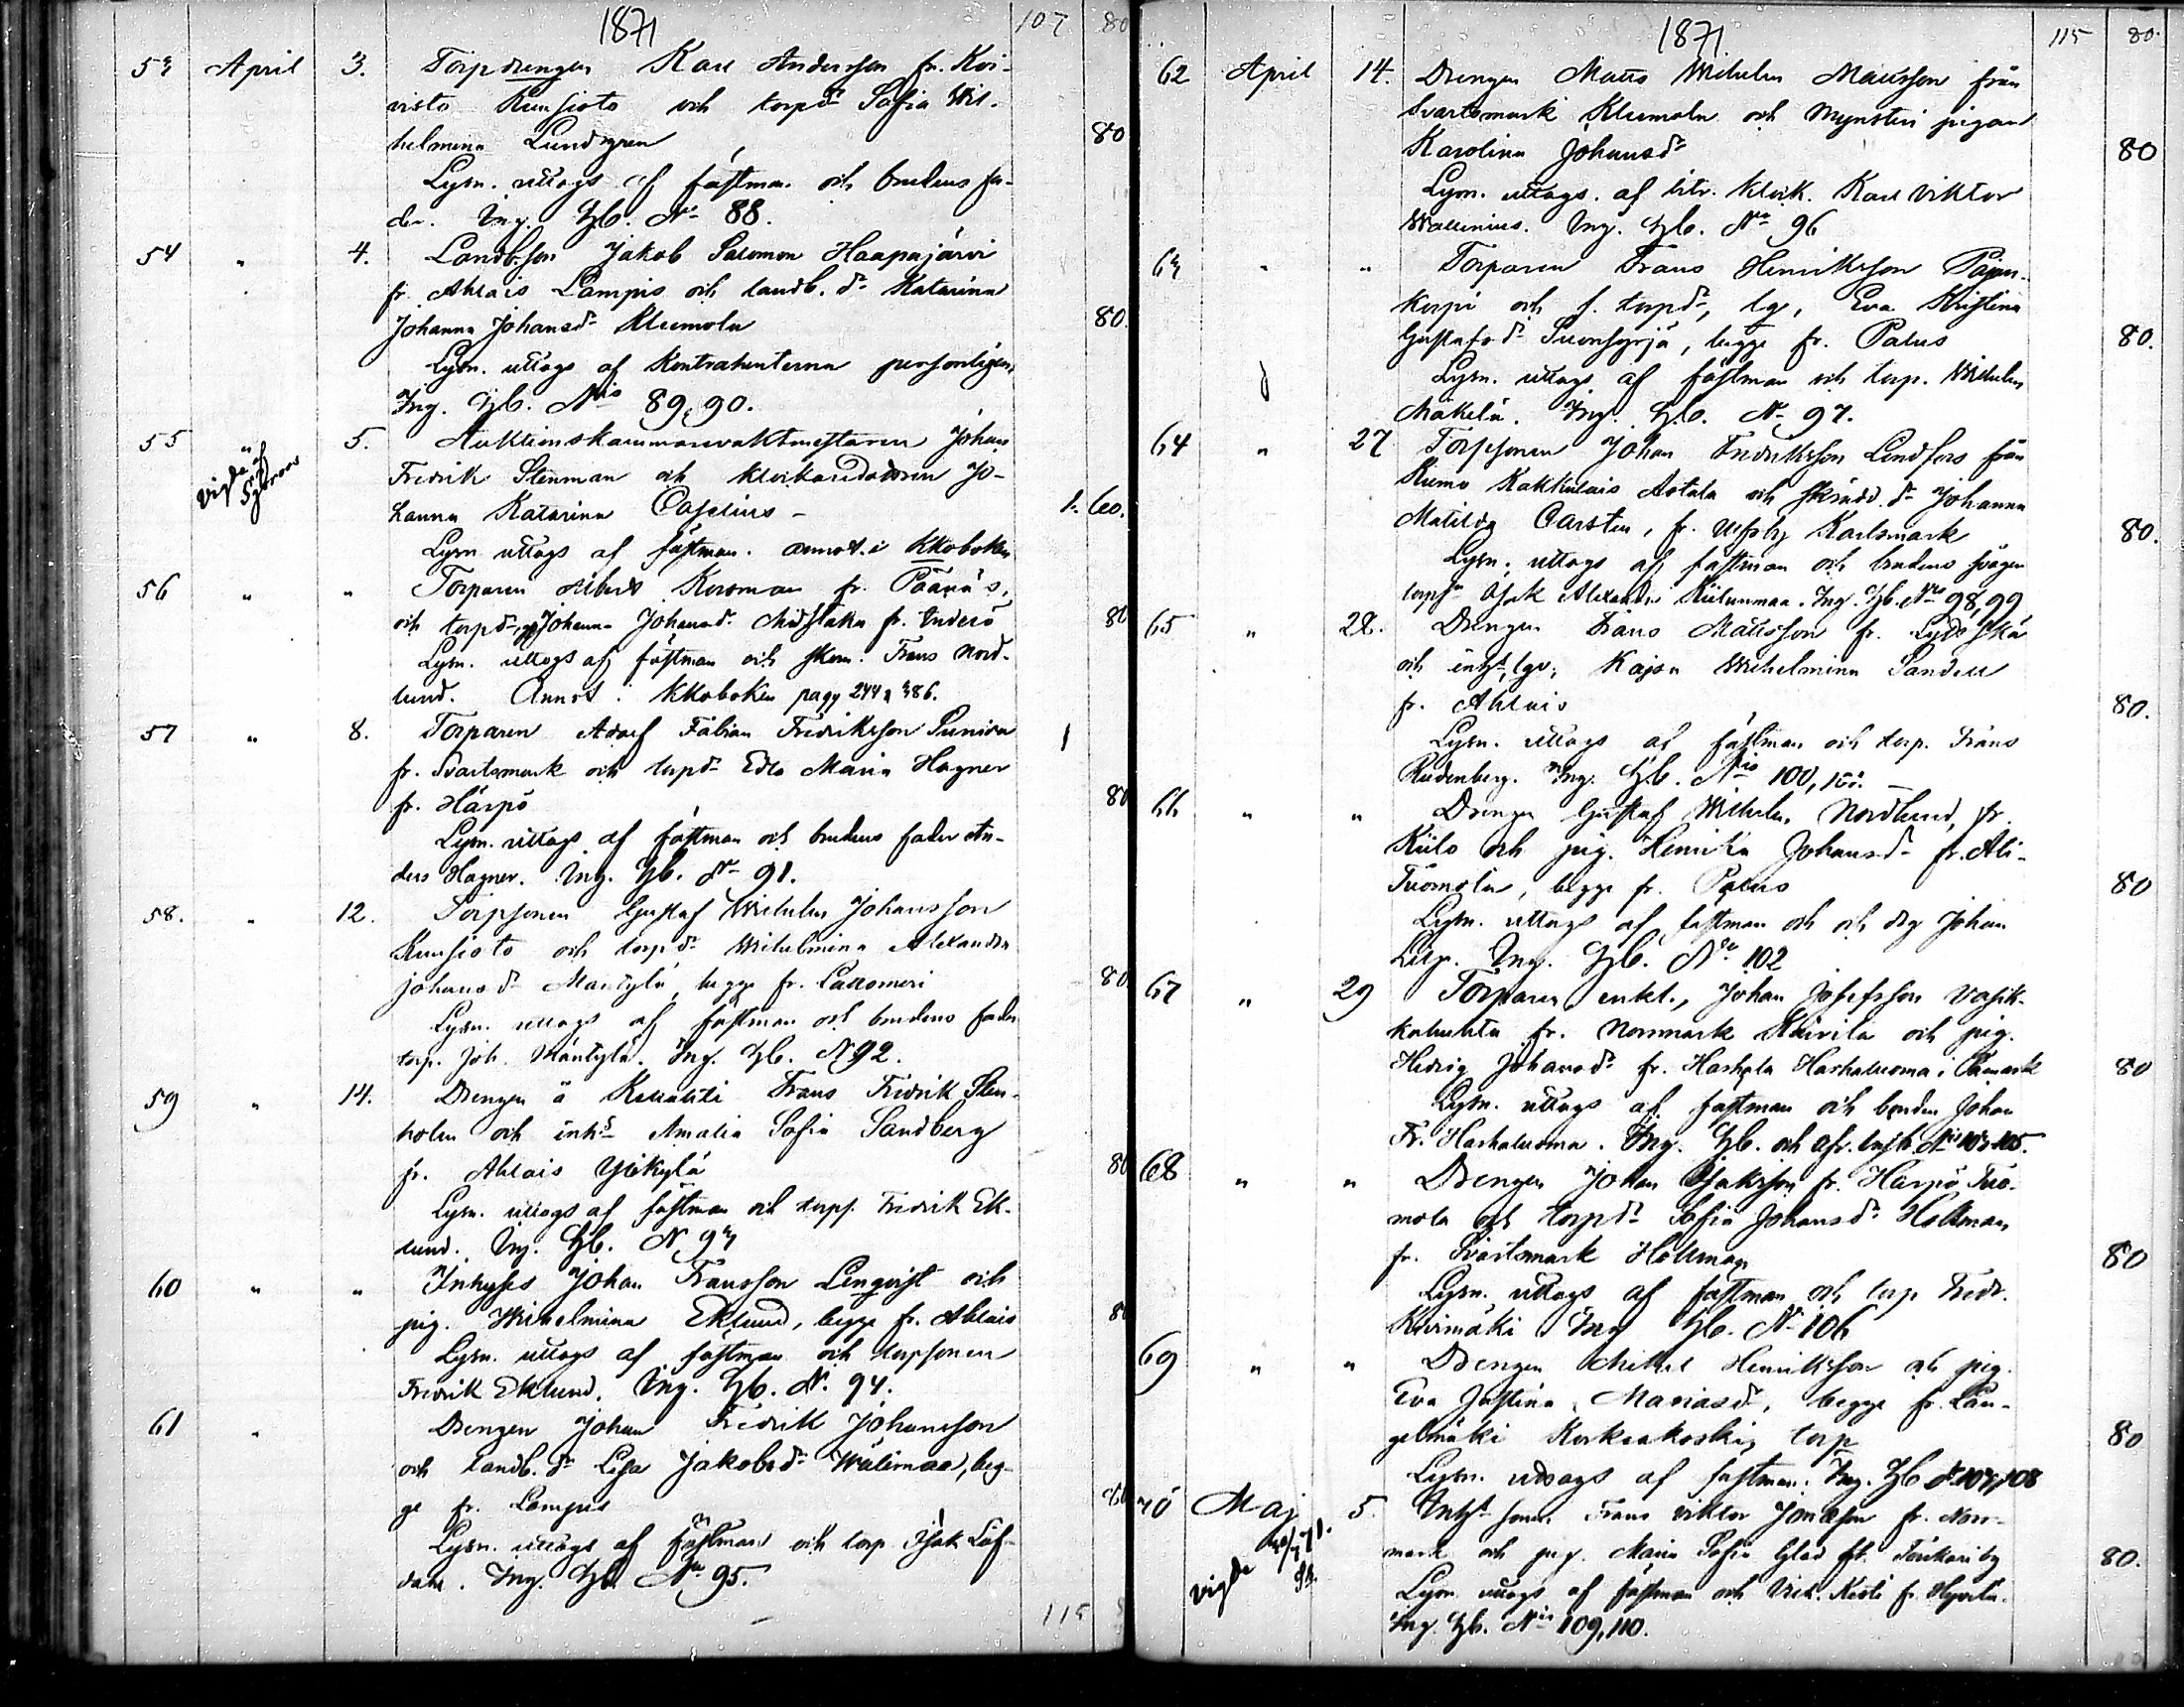 1871 107 80
53 April 3. Torpdrengen Karl Andersson fr. Koi-
visto Kuusisto och torpd. Sofia Wil-
helmina Lundgren 80
Lysn. uttogs af fästman och brudens fa-
der. Ing. Hb. No 88.
54 " 4. Landb.son Jakob Salomon Haapajärvi
fr. Ahlais Lampis och landb. dr Katarina
Johanna Johansdr Klemola 80.
Lysn. uttogs af Kontrahenterna personligen,
Ing. Hb. Nis 89, 90.
55 " 5. Auktionskammarvaktmästaren Johan
Vigda af
Fredrik Stenman och klockaredottren Jo-
hanna Katarina Caselius – 1. 60.
Lysn uttogs af fästman. annot. i KKoboken
56 " " Torparen Albert Korsman fr. Påänäs,
och torpd. Johanna Johansd. fr. Inderö 80
Lysn. uttogs af fästman och skom. Frans Nord-
lund. Annot. i KKoboken pagg 244 386.
57 " 8. Torparen Adolf Fabian Fredriksson Suniva
fr. Svartsmark och torpd. Edla Maria Hagner
fr. Härpö 80
Lysn. uttogs af fästman och brudens fader An-
ders Hagner. Ing. Hb. No 91.
58. " 12. Torpsonen Gustaf Wilhelm Johansson
Kuusisto och torpdr Wilhelmina Alexandra
Johansdr Mäntylä, begge fr. Lattomeri 80
Lysn. uttogs af fästman och brudens fader
torp. Joh. Mäntylä. Ing. Hb. N 92.
59 " 14. Drengen å Frans Fredrik Sten-
holm och inh.d. Amalia Sofia Sandberg
fr. Ahlais Ylikylä 80
Lysn. uttogs af fästman och torps. Fredrik Ek-
lund. Ing. Hb. N 93
60 " " Inhyses Johan Fransson Lenqvist och
pig. Wilhelmina Eklund, begge fr. Ahlais 80
Lysn. uttogs af fästman och torpsonen
Fredrik Eklund. Ing. Hb. No. 94.
61 " Drengen Johan Fredrik Johansson
och landb. dr Lisa Jakobsdr Wälimaa, beg-
ge fr. Lampis 80
Lysn. uttogs af fästman och torp Isak Löf-
dahl. Ing. Hb No 95.
115
1871. 115 80.
62 April 14. Drengen Matts Wilhelm Mattsson från
Svartsmark Klemola och Mynsteri pigan
Karolina Johansdr 80
Lysn. uttogs. af bitr. klock. Karl Viktor
Wallenius. Ing. Hb. No 96
63 " " Torparen Frans Henriksson Pajun-
korpi och f. torpdr, lg, Eva Kristina
Gustafsdr Suonsyrjä, begge fr. Palus 80.
Lysn. uttogs af fästman och torp. Wilhelm
Mäkelä. Ing. Hb. No 97.
64 " 27 Torpsonen Johan Fredriksson Lindfors från
Kiimo Kakkulais Astala och skrädd. dr Johanna
Matilda Carsten, fr. Ulfsby Karlsmark 80.
Lysn. uttogs af fästman och brudens svåger
torps Isak Alexander Kiilunmaa. Ing. Hb. Nris 98, 99
65 " 28. Drengen Frans Mattsson fr. Lyttskä
och inhs, lgr, Kajsa Wilhelmina Sandell
fr. Ahlais 80.
Lysn. uttogs af fästman och torp. Frans
Rudenberg. Ing. Hb. Nis 100, 101. –
66 " " Drengen Gustaf Wilhelm Nordlund, fr.
Kiilo och pig. Henrika Johansd. fr. Ali-
Tuomola, begge fr. Palus 80
Lysn. uttogs af fästman och och drg Johan
Ing. Hb. No 102
67 " 29 Torparen enkl., Johan Josefsson Vasik-
kaluhta fr. Norrmark Kaivila och pig.
Hedvig Johansdr fr. Harhala Harhaluoma i Påmark 80
Lysn. uttogs af fästman och bonden Johan
Fr. Harhaluoma. Ing. Hb. och afr. betyg Nis 103-105.
68 " " Drengen Johan Isaksson fr. Härpö Tuo-
mola och torpdr Sofia Johansdr Hollman
fr. Svartsmark Hollman 80
Lysn. uttogs af fästman och torp Fredr.
Kivimäki Ing Hb. No 106
69 " " Drengen Mikel Henriksson och pig.
Eva Justina Mariasd., begge fr. Lau-
gelmäki Korkeakoski torp 80
Lysn. uttogs af fästman. Ing. Hb N 107, 108
70 Maj 5. Inhs sonen Frans Viktor Jonasson fr. Norr-
Vigde
mark och pig. Maria Sofia Glad fr. Torikariby 80.
Lysn. uttogs af fästman och Vick. Kesti fr. Hyvelä.
Ing. Hb. Nis 109, 110.